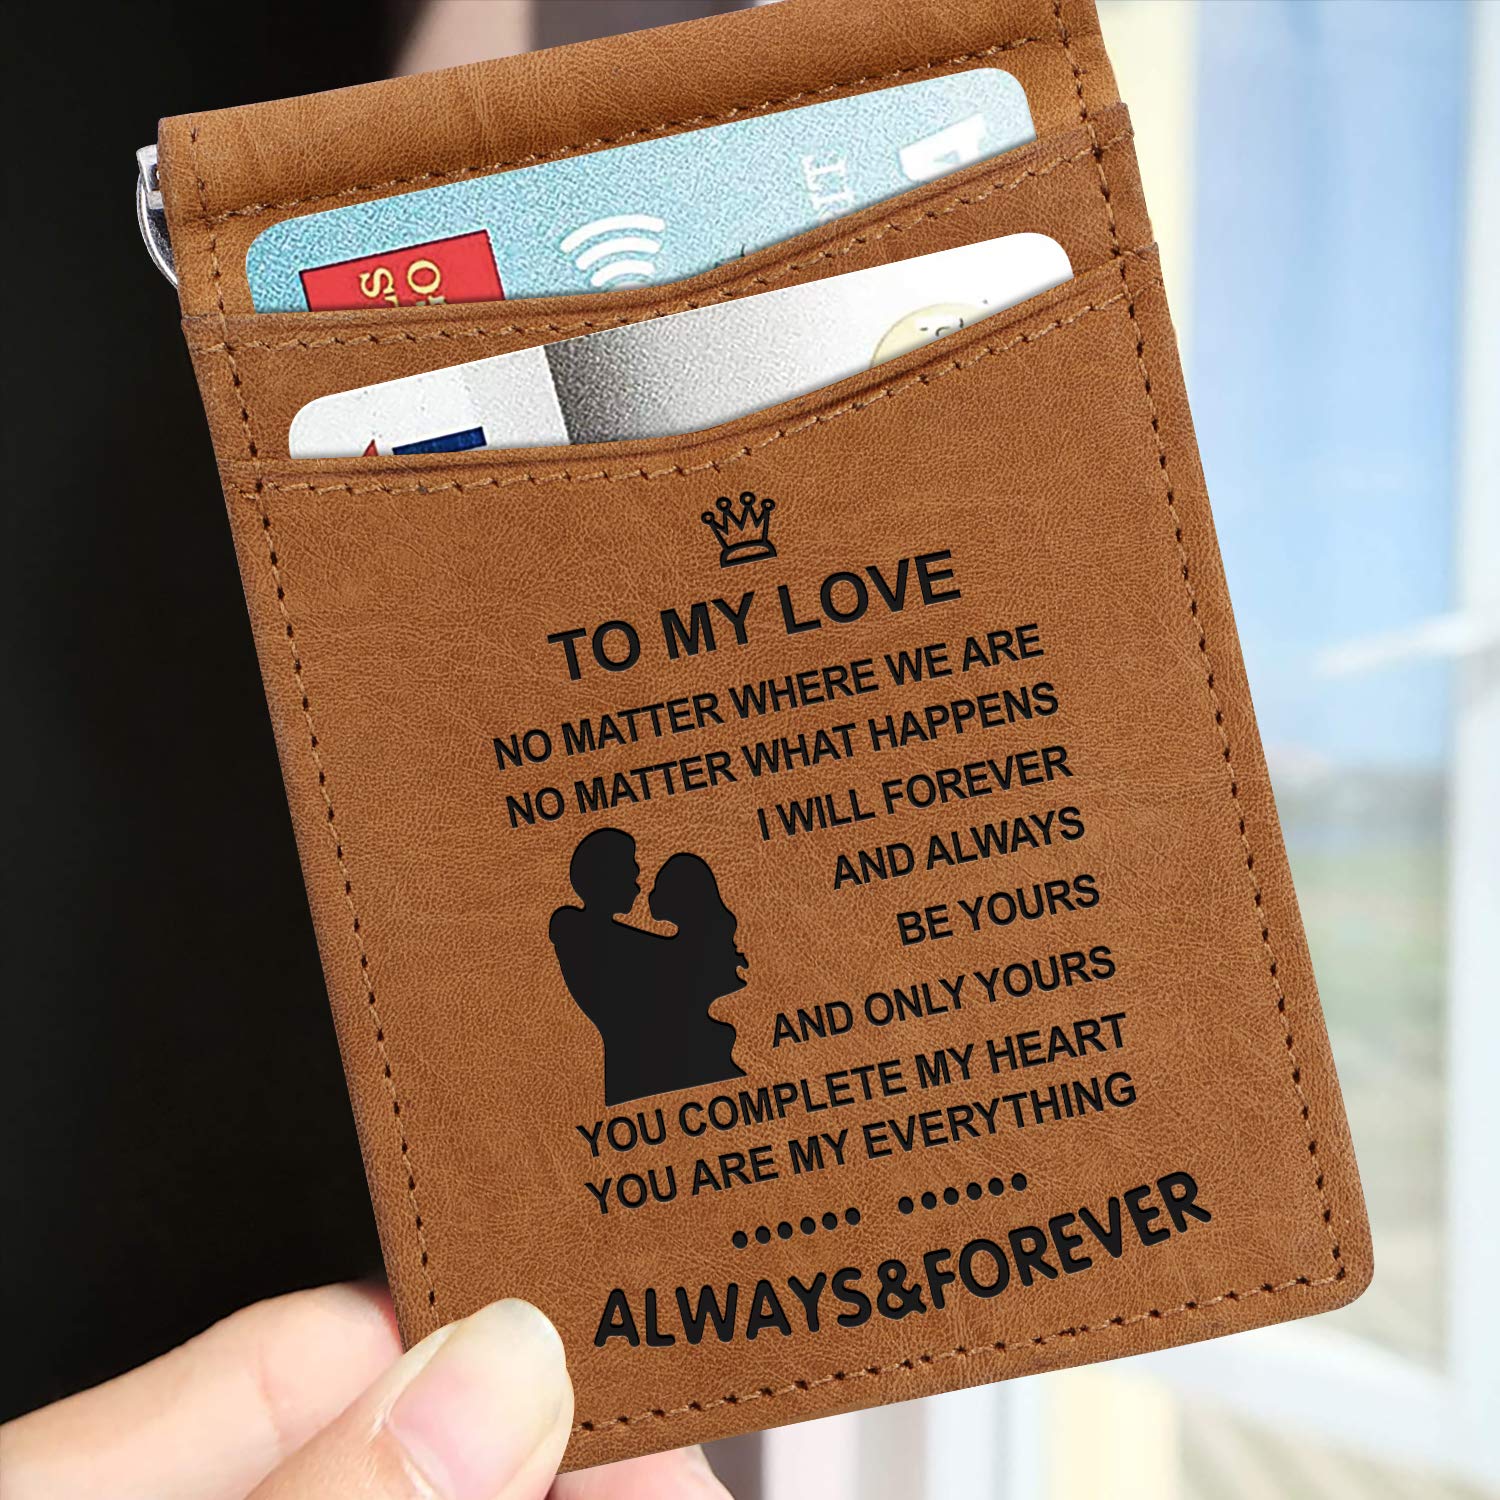 TO MY LOVE
NO MATTER WHERE WE ARE
NO MATTER WHAT HAPPENS
I WILL FOREVER
AND ALWAYS
BE YOURS
AND ONLY YOURS
YOU COMPLETE MY HEART
YOU ARE MY EVERYTHING
...... ......
ALWAYS&FOREVER